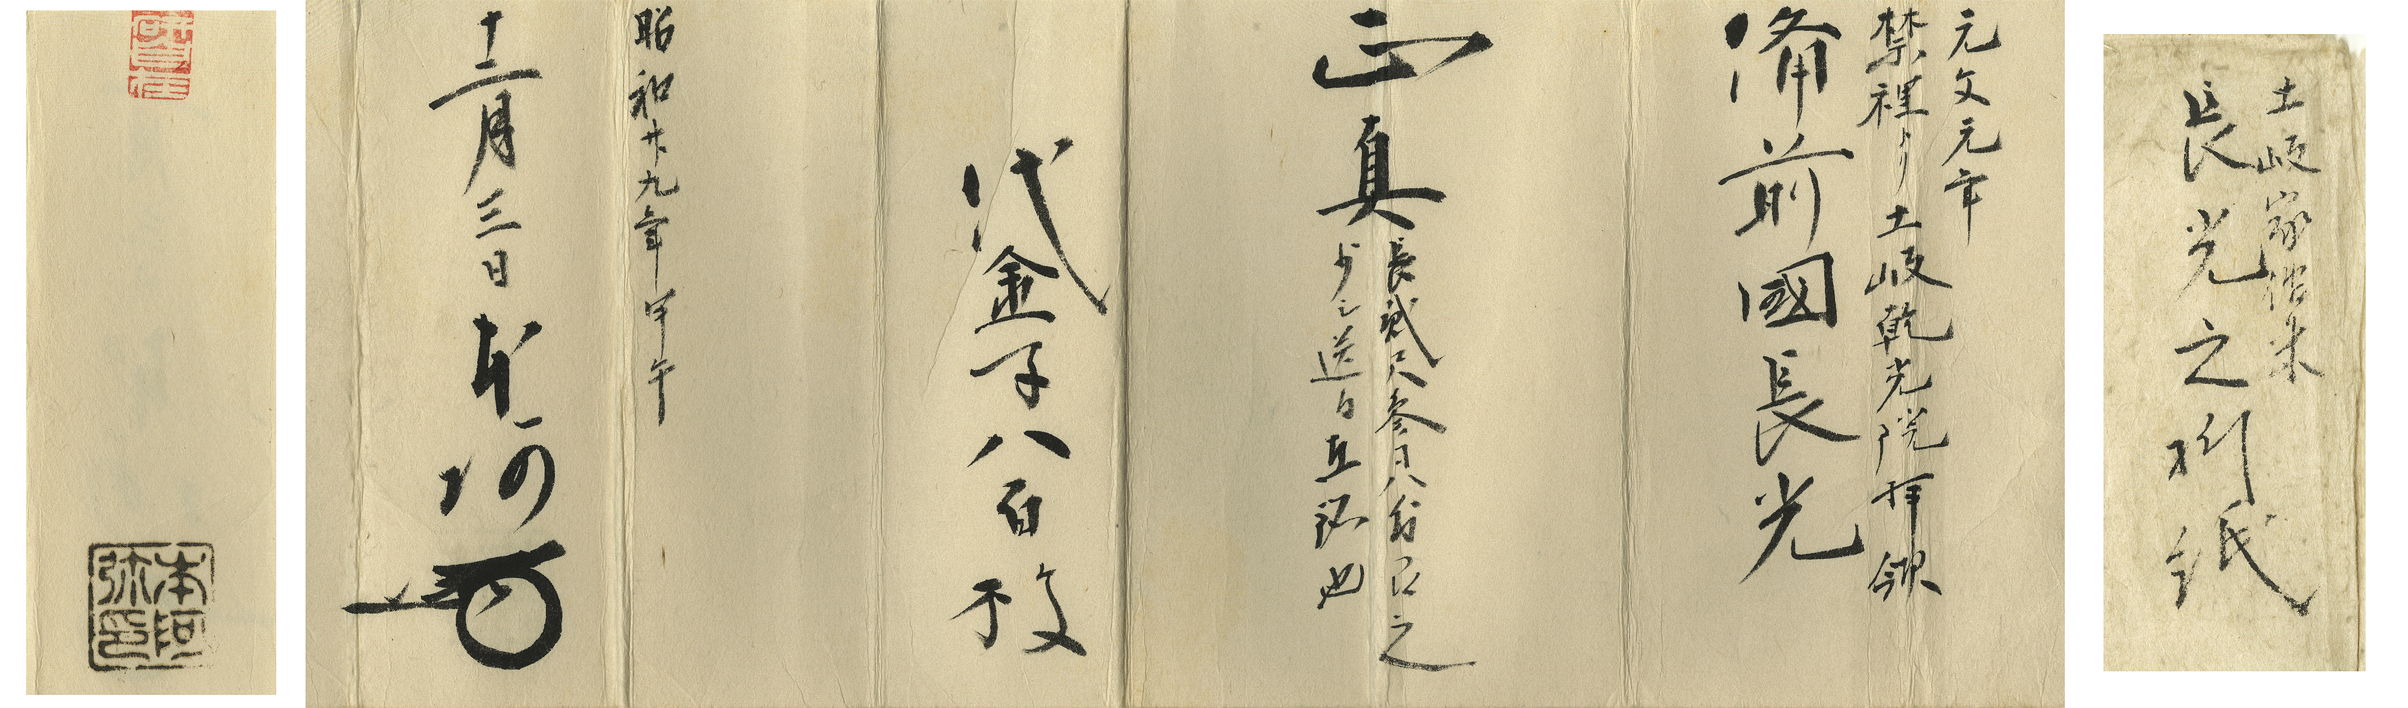 土岐家傳来
長光之折紙
元文元年
禁裡ヨリ土岐乾光院拝領
備前國長光
正真
長貳尺参寸八分有之
少シ送リ在銘也
代金子八百枚
昭和廿九年甲午
十二月三日 本阿
本阿弥印